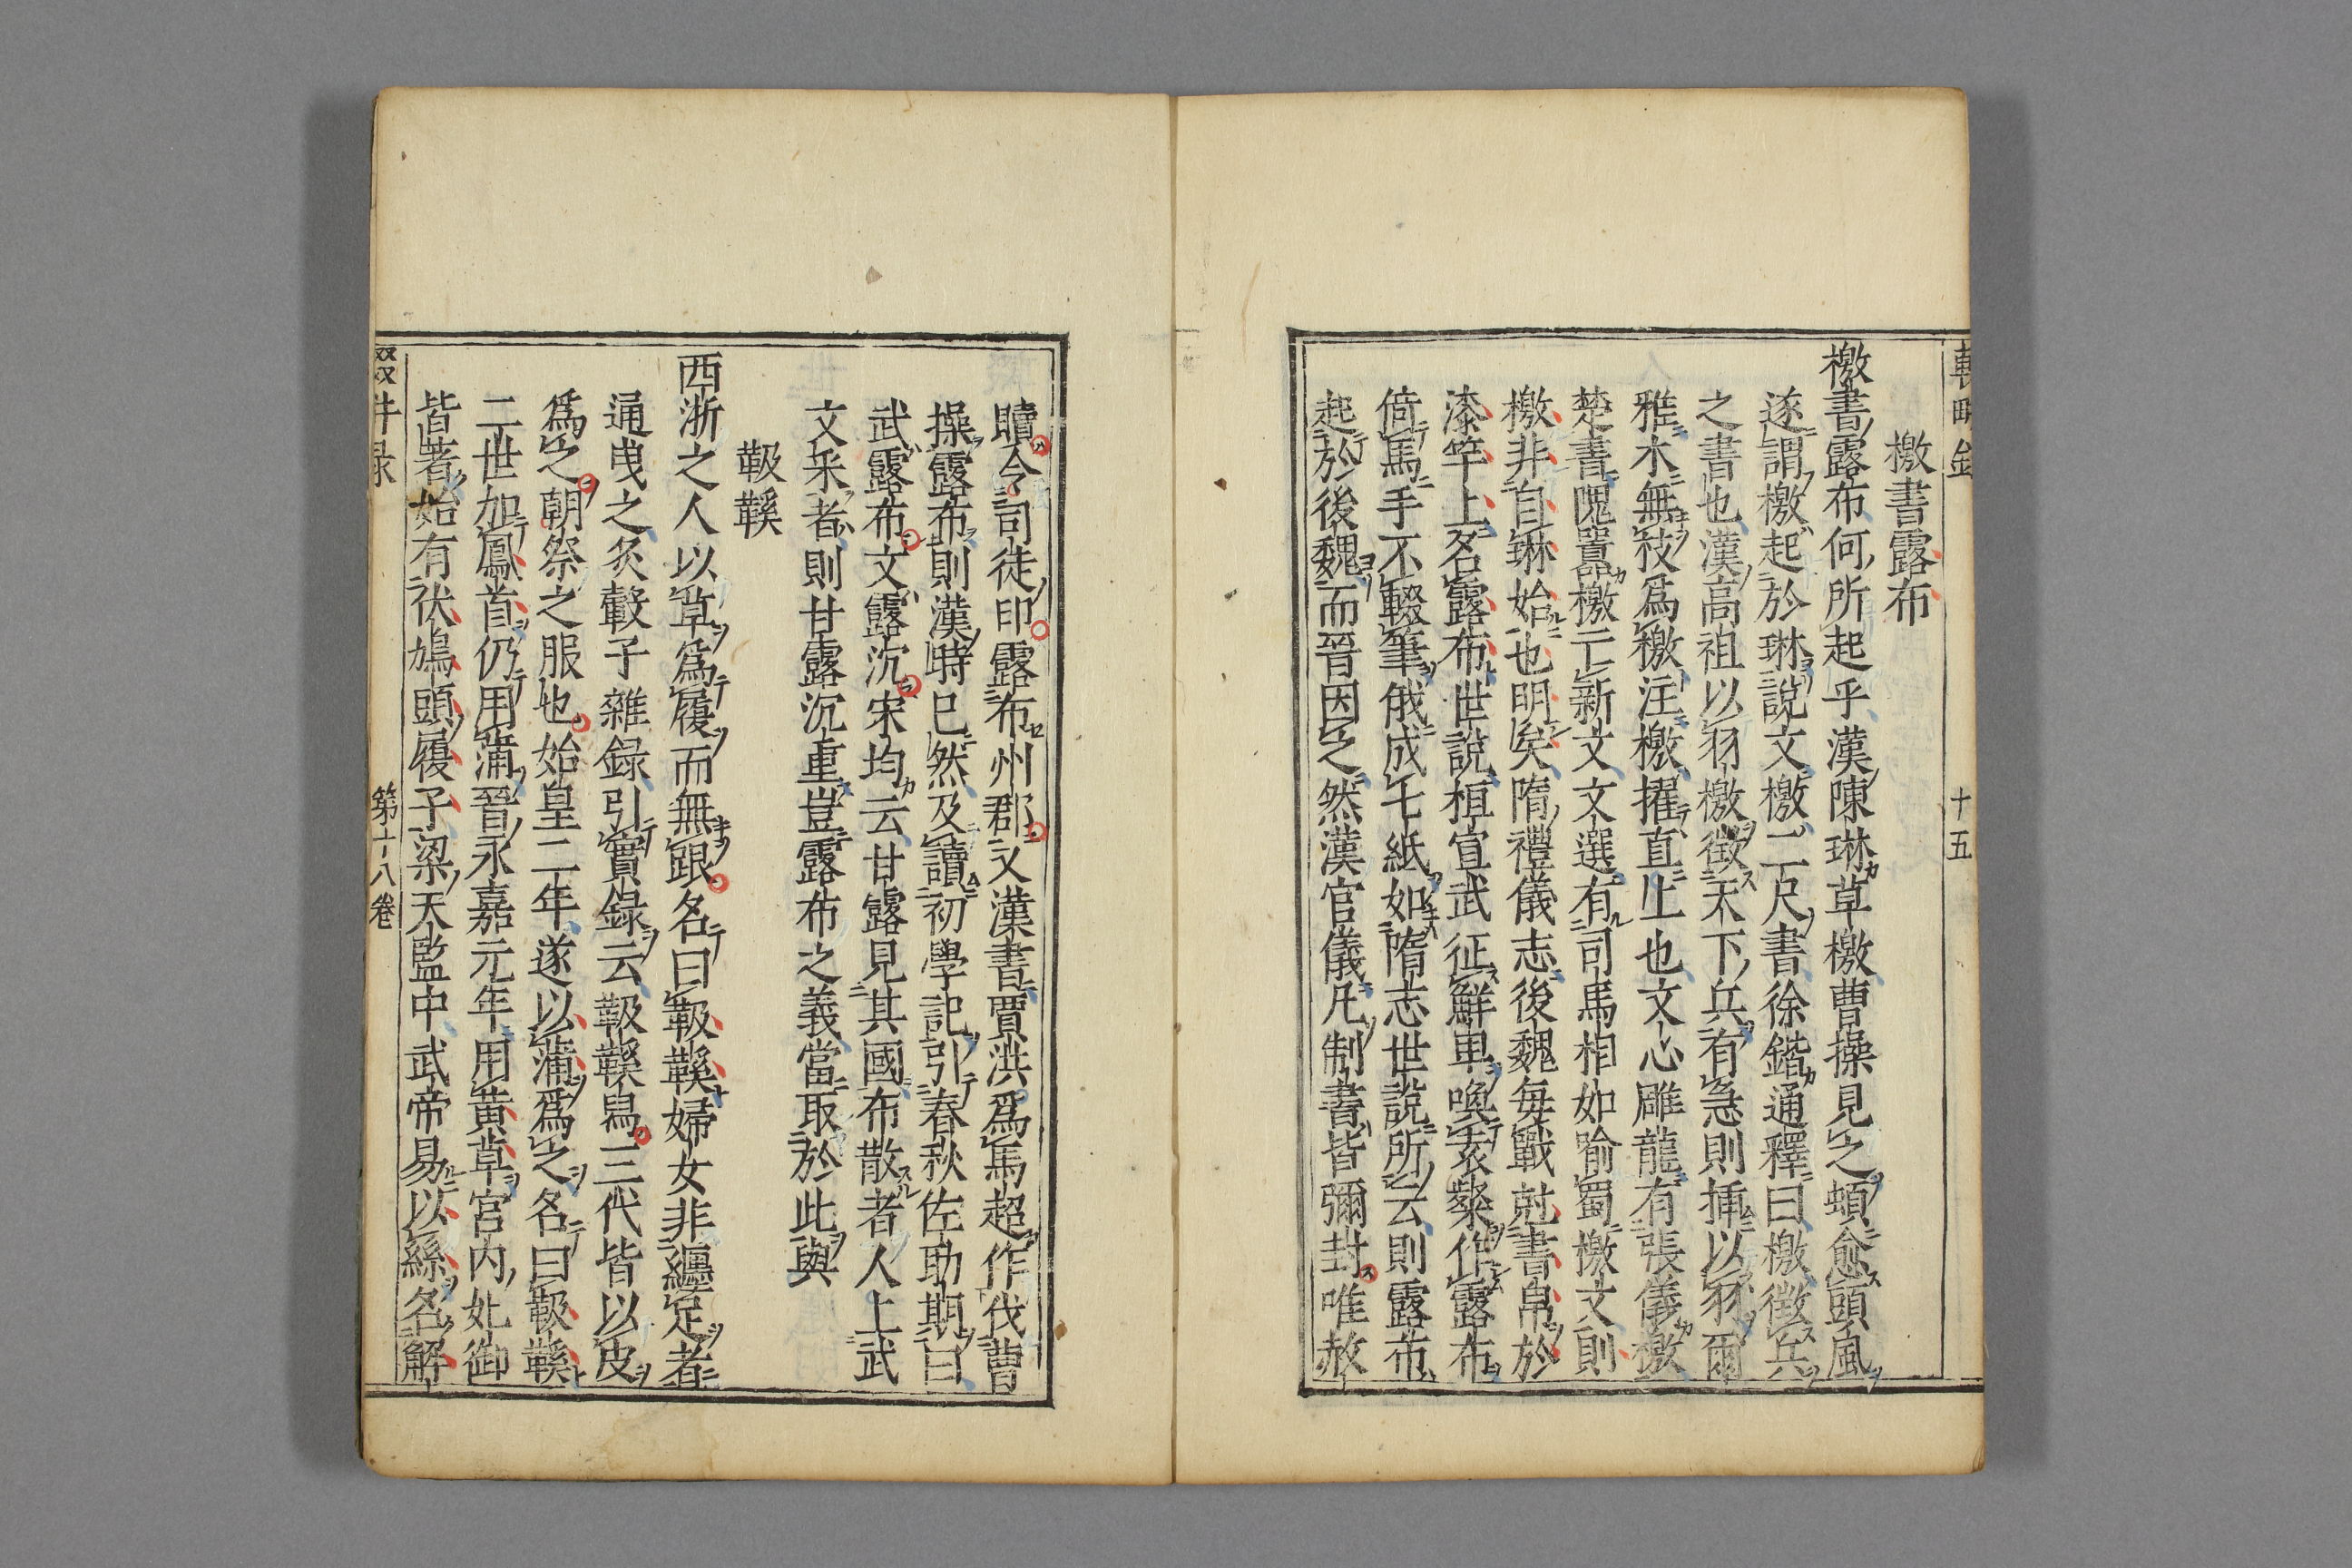 十五
檄書露布
檄書露布何所起乎漢陳琳草檄曹操見之頓愈頭風
遂謂檄起於琳說文檄二尺書徐鍇通釋曰檄徵兵
之書也漢高祖以羽檄徵天下兵有急則插以羽爾
雅木無枝爲檄注檄擢直上也文心雕龍有張儀檄
楚書隗囂檄亡新文文選有司馬相如喻蜀檄文則
檄非自琳始也明矣隋禮儀志後魏每戰尅書帛於
漆竿上名露布世說桓宣武征鮮卑喚袁粲作露布
倚馬手不輟筆俄成七紙如隋志世說所云則露布
起於後魏而晉因之然漢官儀凡制書皆彌封唯赦
贖令司徒印露布州郡又漢書賈洪爲馬超作伐曹
操露布則漢時巳然及讀初學記引春秋佐助期曰
武露布文露沉宋均云甘露見其國布散者人上武
文采者則甘露沉重豈露布之義當取於此與
靸鞵
西浙之人以草爲履而無跟名曰靸鞵婦女非纏足者
通曳之炙轂子雜録引實錄云靸鞵舄三代皆以皮
爲之朝祭之服也始皇二年遂以蒲爲之名曰靸鞵
二世加鳳首仍用蒲晉永嘉元年用黃草宮内妃御
皆著始有伏鳩頭履子梁天監中武帝易以絲名解
第十八卷